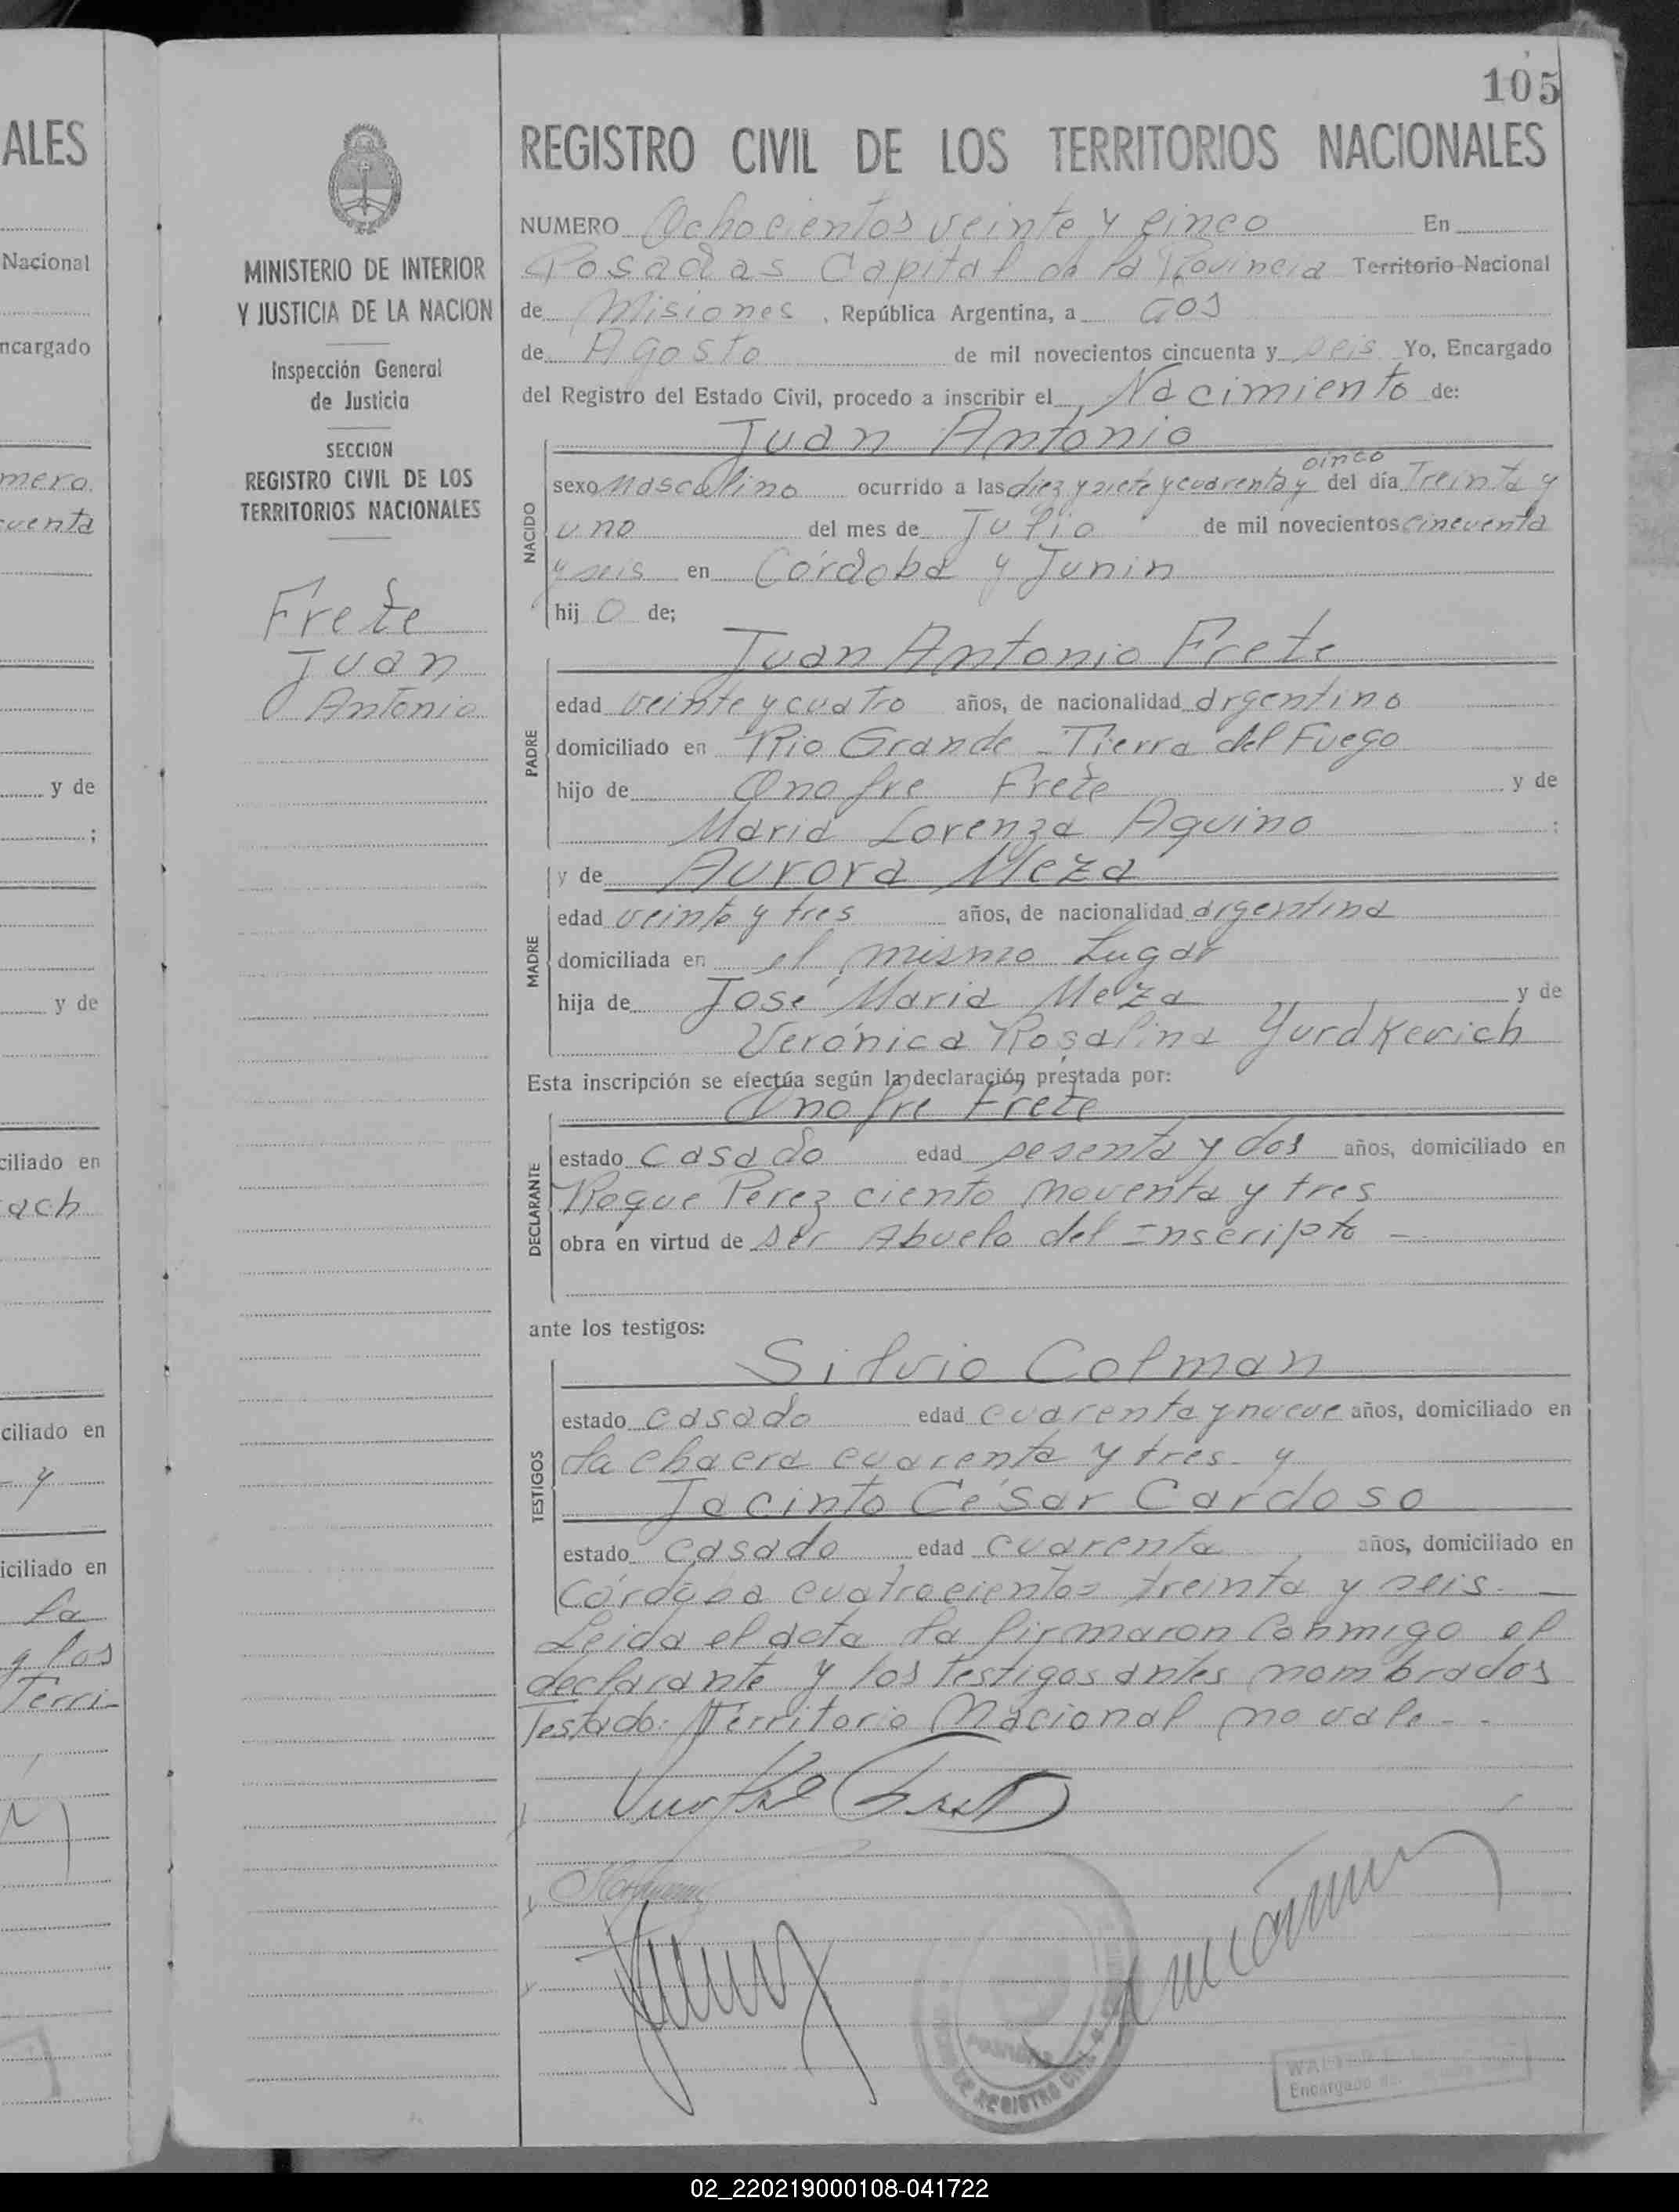 105
ALES
Nacional
ncargado
mero
cuenta
y de
;
y de
ciliado en
ach
ciliado en
- y
iciliado en
la
y los
Terri-
MINISTERIO DE INTERIOR
Y JUSTICIA DE LA NACION
Inspección General
de Justicia
SECCION
REGISTRO CIVIL DE LOS
TERRITORIOS NACIONALES
Frete
Juan
Antonio
REGISTRO CIVIL DE LOS TERRITORIOS NACIONALES
NUMERO Ochocientos veinte y cinco En
Posadas Capital de la Provincia Territorio Nacional
de Misiones, República Argentina, a dos
de Agosto de mil novecientos cincuenta y seis Yo, Encargado
del Registro del Estado Civil, procedo a inscribir el Nacimiento de:
Juan Antonio
NACIDO
cinco
sexo Masculino ocurrido a las diez y siete y cuarenta y del día Treinta y
uno del mes de Julio de mil novecientos cincuenta
y seis en Córdoba y Junin
hij o de;
Juan Antonio Frete
PADRE
edad veinte y cuatro años, de nacionalidad argentino
domiciliado en Rio Grande - Tierra del Fuego
hijo de Onofre Frete y de
Maria Lorenza Aquino ;
y de Aurora Meza
MADRE
edad veinte y tres años, de nacionalidad argentina
domiciliada en el mismo Lugar
hija de José Maria Meza y de
Verónica Rosalina Yurdkevich
Esta inscripción se efectúa según la declaración prestada por:
Onofre Frete
DECLARANTE
estado casado edad sesenta y dos años, domiciliado en
Roque Perez ciento noventa y tres
obra en virtud de ser Abuelo del Inscripto -
ante los testigos:
Silvio Colman
TESTIGOS
estado casado edad cuarenta y nueve años, domiciliado en
la chacra cuarenta y tres. y
Jacinto César Cardoso
estado casado edad cuarenta años, domiciliado en
Córdoba cuatrocientos treinta y seis. -
Leida el acta la firmaron conmigo el
declarante y los testigos antes nombrados
Testado: Territorio Nacional no vale - -
DE REGISTRO CIVIL
Encargado
02_220219000108-041722